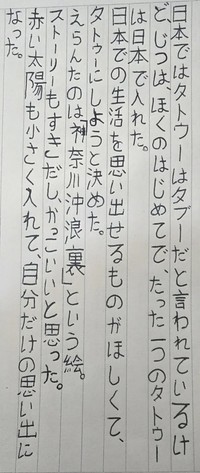 日本ではタトゥーはタブーだと言われているけ
ど、じつは、ぼくのはじめてで、たった一つのタトゥー
は日本で入れた。
日本での生活を思い出せるものがほしくて、
タトゥーにしようと決めた。
えらんだのは「神奈川沖浪裏」という絵。
ストーリーもすきだし、かっこいいと思った。
赤い太陽も小さく入れて、自分だけの思い出に
なった。